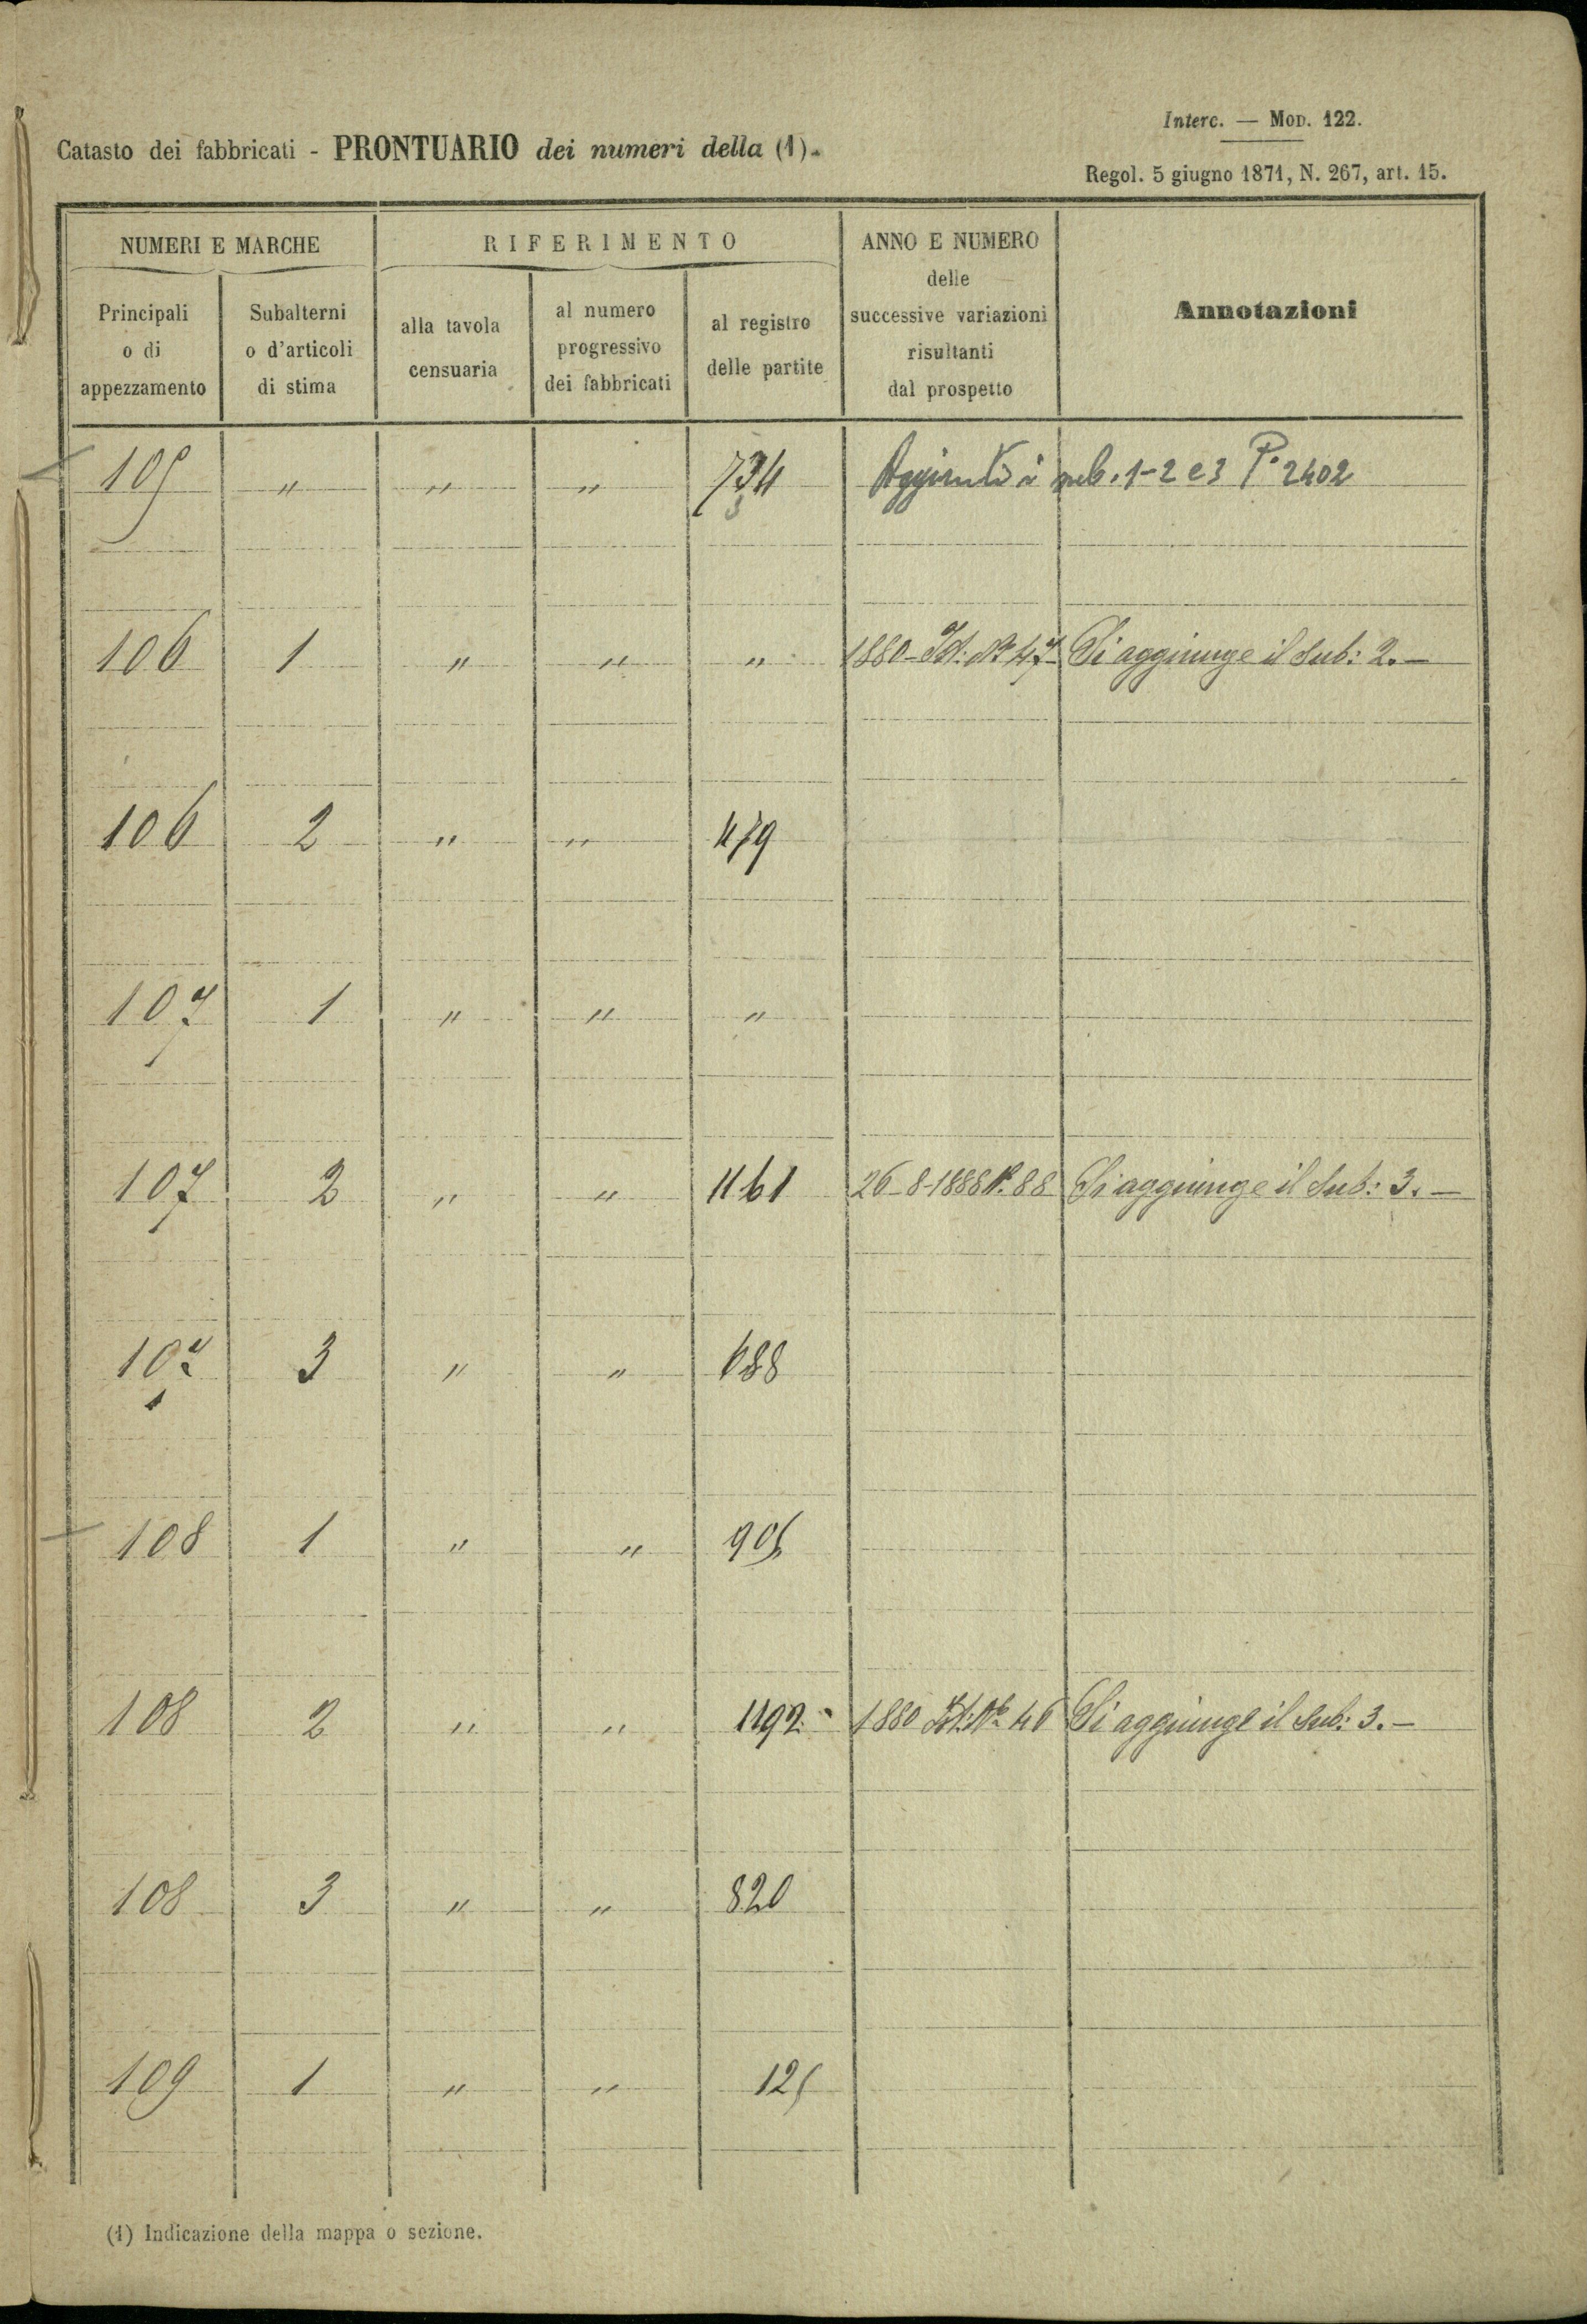 Interc. — Mod. 122.
Catasto dei fabbricati - PRONTUARIO dei numeri della (1).
Regol. 5 giugno 1871, N. 267, art. 15.
NUMERI E MARCHE
RIFERIMENTO
ANNO E NUMERO
delle
successive variazioni
risultanti
dal prospetto
Annotazioni
Principali
o di
appezzamento
Subalterni
o d'articoli
di stima
alla tavola
censuaria
al numero
progressivo
dei fabbricati
al registro
delle partite
105 " " " 734 Aggiunti i sub. 1-2 e 3 P. 2402
106 1 " " " 1880 N° 47 Si aggiunge il Sub: 2.—
106 2 " " 479
107 1 " " "
107 2 " " 1161 26-8-1888 N. 88 Si aggiunge il Sub: 3.—
107 3 " " 688
108 1 " " 905
108 2 " " 1192 1880 N° 46 Si aggiunge il Sub: 3.—
108 3 " " 820
109 1 " " 125
(1) Indicazione della mappa o sezione.